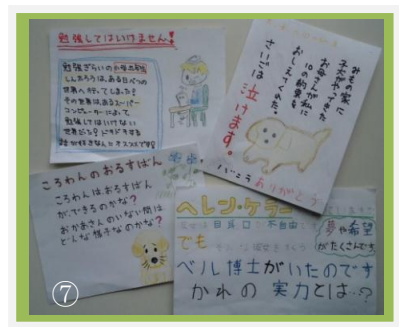 勉強してはいけません!
勉強ぎらいの
しんたろうは、ある日べつの
世界へ行ってしまった?
その世界は、あるスーパー
コンピューターによって
勉強してはいけない
世界だった?ドキドキする
話が好きな人にオススメです
子犬がやってきた
お母さんが私に
10の約束を
おしえてくれた。
さいごは
泣けます。
ありがとう
ころわんのおるすばん
ころわんはおるすばん
ができるのかな?
おかあさんのいない間は
どんな様子なのかな?
ヘレン・ケラー
目 耳 口 不自由
でも
夢や希望
がたくさんです
ベル博士がいたのです
かれの実力とは…?
⑦